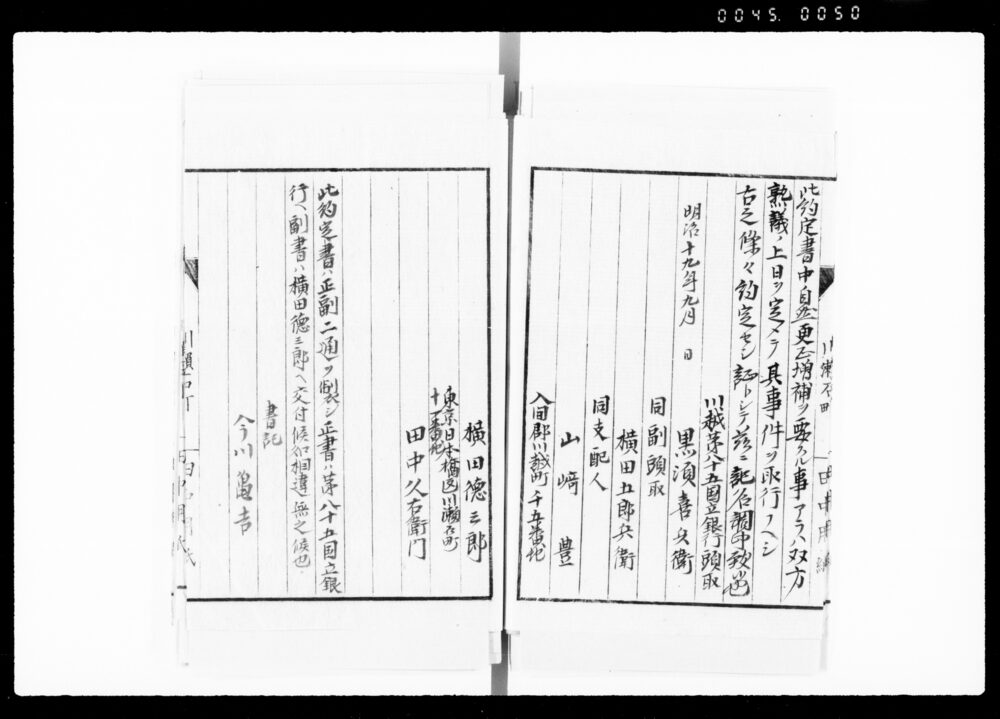 0045. 0050
此約定書中自然更正増補ヲ要スル事アラハ双方
熟議ノ上日ヲ定メテ其事件ヲ取行フヘシ
右之條々約定セシ証トシテ茲ニ記名調中致候也
明治十九年九月 日
川越第八十五国立銀行頭取
黒須喜兵衛
同副頭取
横田五郎兵衛
同支配人
山﨑豊
入间郡川越町千五番地
横田德三郎
東京日本橋区川瀬石町
十一番地
田中久右衛门
此約定書ハ正副二通ヲ製シ正書ハ第八十五国立銀
行ヘ副書ハ横田德三郎ヘ交付候仍相違無之候也
書記
今川